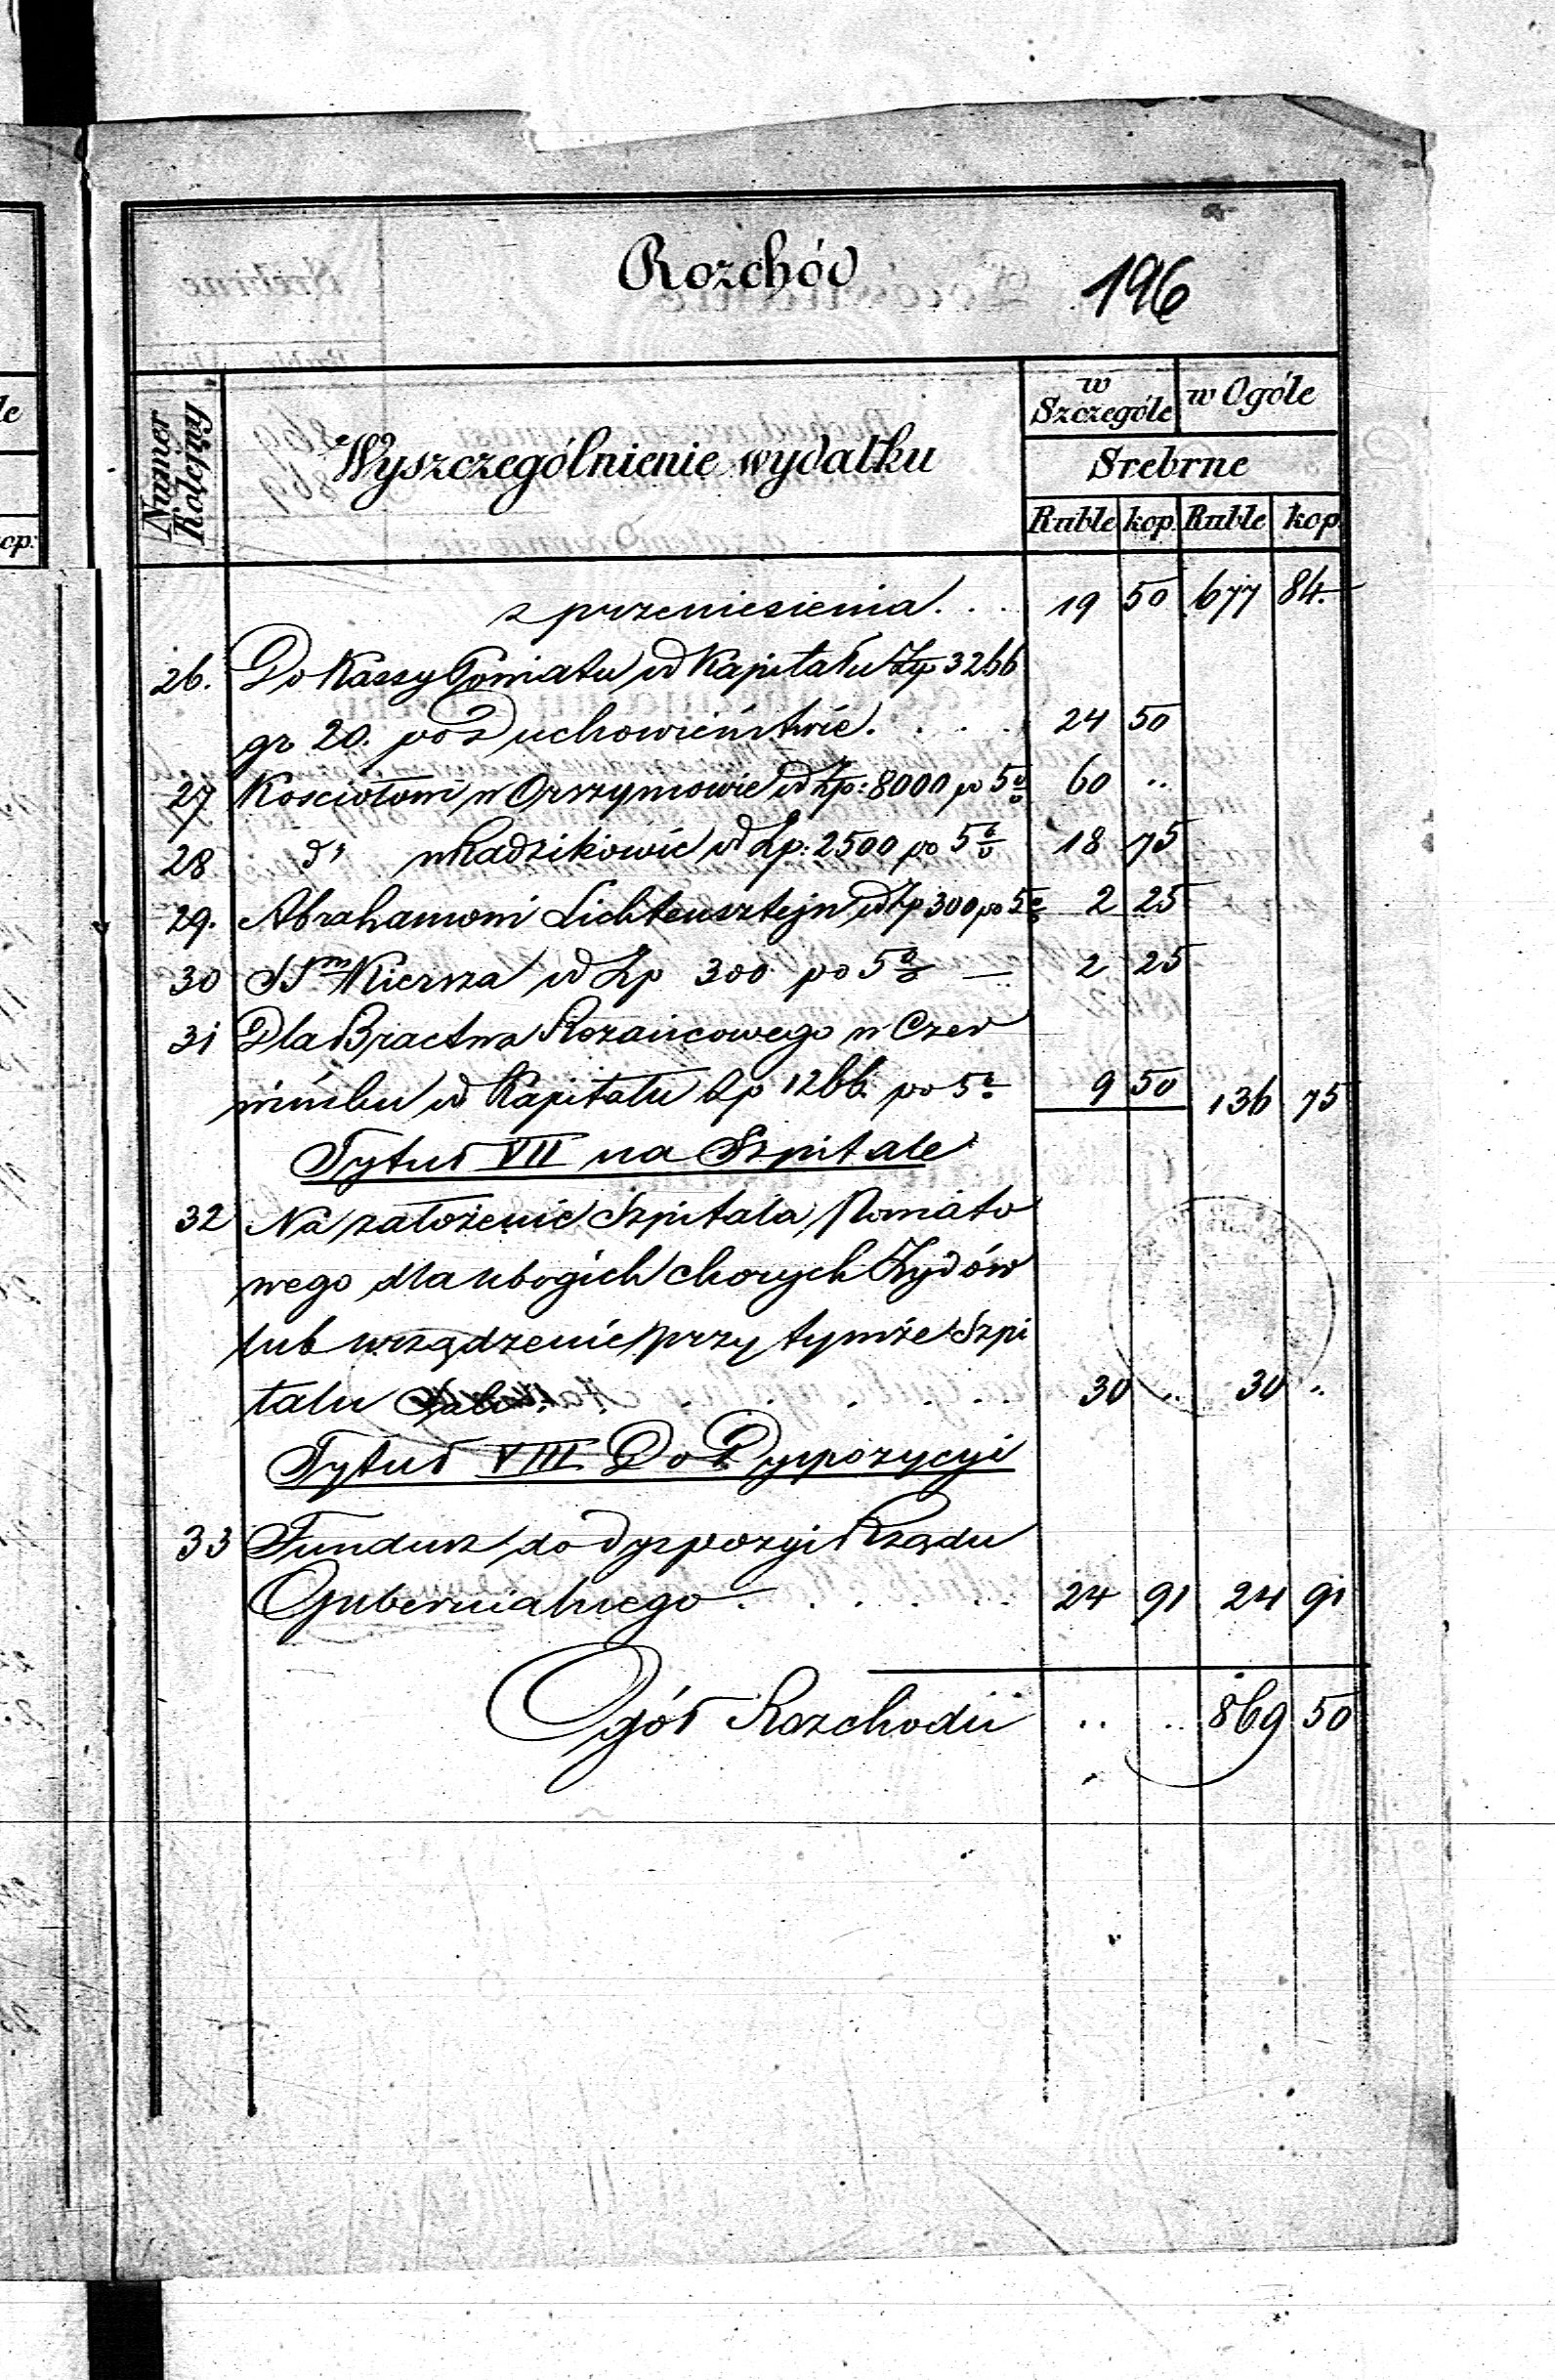 Rozchód 196
Numer Kolejny
Wyszczególnienie wydatku
w Szczególe w Ogóle
Srebrne
Ruble kop. Ruble kop.
z przeniesienia. . . 19 50 677 84.
26. Do Kassy Powiatu od Kapitału Zp 3266
gr 20. po Duchowieństwie. . . . 24 50
27 Kościołowi w Orszymowie od Zp: 8000 po 5% 60 ..
28 do w Radzikowie od Zp: 2500 po 5% 18 75
29. Abrahamowi Lichtensztejn od Zp 300 po 5% 2 25
30 od Zp 300 po 5% — 2 25
31 Dla Bractwa Rozańcowego w Czer
wińsku od Kapitału Zp 1266. po 5% 9 50 136 75
Tytuł VII na Szpitale
32 Na założenie Szpitala Powiato
wego dla ubogich chorych Żydów
lub urządzenie przy tymże Szpi
talu . . . . . . 30 .. 30 ..
Tytuł VIII Do Dyspozycyi
33 Fundusz do dyspozyi Rządu
Gubernialnego . . . . . . 24 91 24 91
Ogół Rozchodu .. .. 869 50